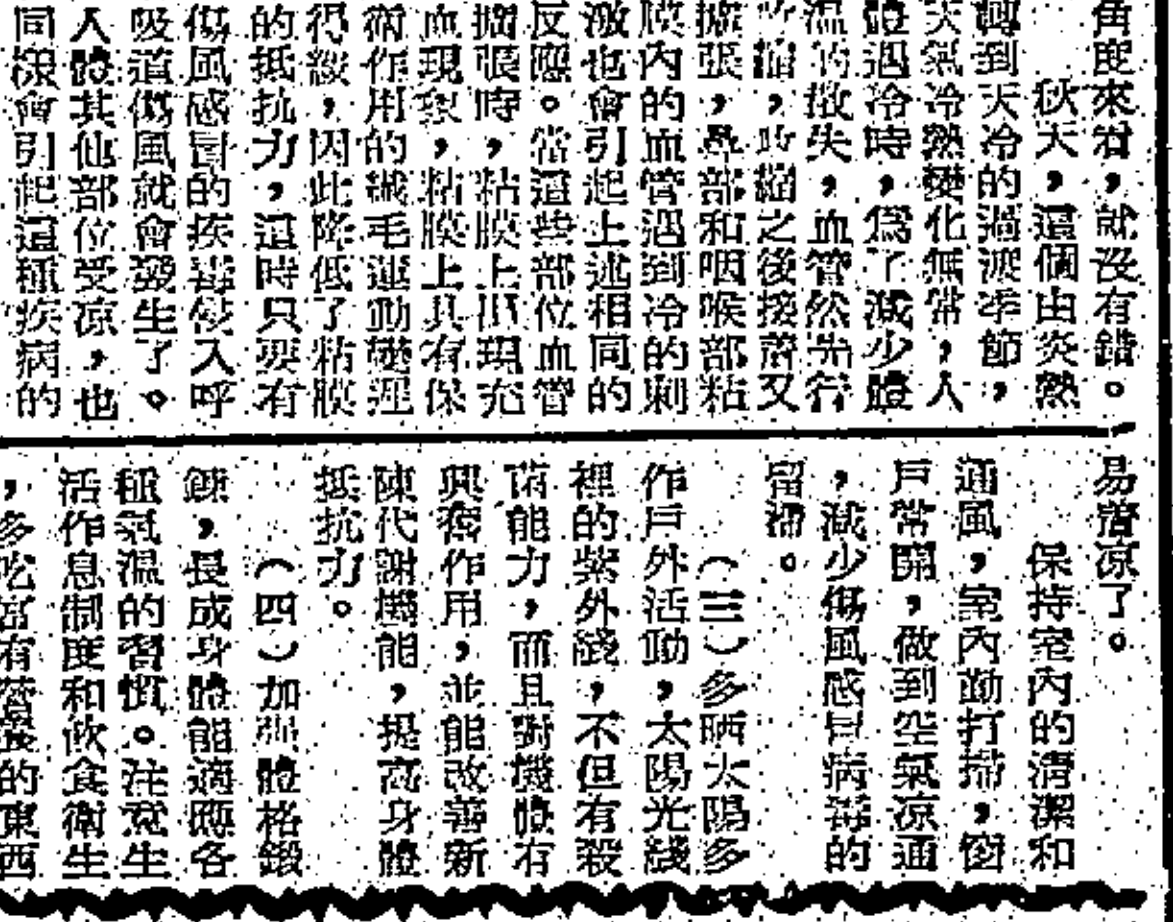 角度來看，就沒有錯。
秋天，這個由炎熱
轉到天冷的過渡季節，
天氣冷熱變化無常，人
體遇冷時，爲了減少體
溫的散失，血管然先行
收縮，收縮之後接著又
擴張，鼻部和咽喉部粘
膜內的血管遇到冷的刺
激也會引起上述相同的
反應。當這些部位血管
擴張時，粘膜上出現充
血現象，粘膜上具有保
衛作用的纖毛運動變遲
得緩，因此降低了粘膜
的抵抗力，這時只要有
傷風感冒的疾毒侵入呼
吸道傷風就會發生了。
人體其他部位受凉，也
同樣會引起這種疾病的
易著凉了。
保持室內的清潔和
通風，室內勤打掃，窗
戶常開，做到空氣凉通
，減少傷風感冒病毒的
留滯。
（三）多晒太陽多
作戶外活動，太陽光綫
裡的紫外綫，不但有殺
菌能力，而且對機體有
興奮作用，並能改善新
陳代謝機能，提高身體
抵抗力。
（四）加强體格鍛
鍊，長成身體能適應各
種氣溫的習慣。注意生
活作息制度和飲食衛生
，多吃富有營養的東西